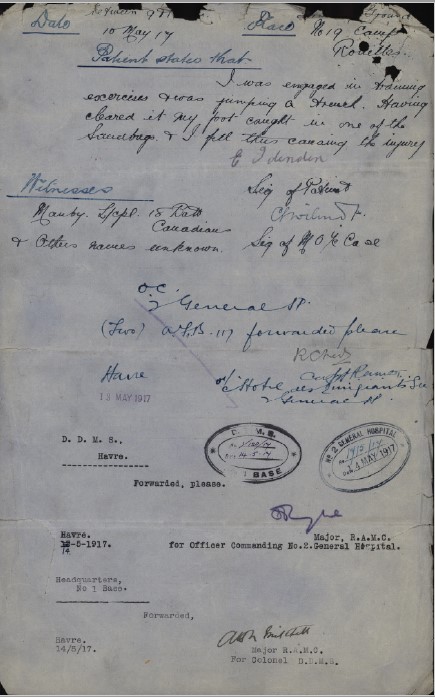 Date 10 May 17 Place No 19 Camp
Rouelles.
Patient states that
I was engaged in training
exercises & was jumping a trench. Having
cleared it my foot caught in one of the
Sandbags & I fell thus causing the injury
Witnesses Sig of Patient
Manby L/cpl. 15 Batt
Canadians
& Others names unknown. Sig of M O i/c Case
O.C.
2 General H.
(Two) A.F.B. 117 forwarded please
Havre
13 MAY 1917
2 General H.
D. D. M. S.,
Havre.
D.D.M.S.
14.5.17
No 1 BASE
No 2 GENERAL HOSPITAL
14 MAY 1917
Forwarded, please.
Major, R.A.M.C.
Havre.
14-5-1917. for Officer Commanding No.2.General Hospital.
Headquarters,
No 1 Base.
Forwarded,
Havre.
14/5/17.
Major R.A.M.C.
For Colonel D.D.M.S.